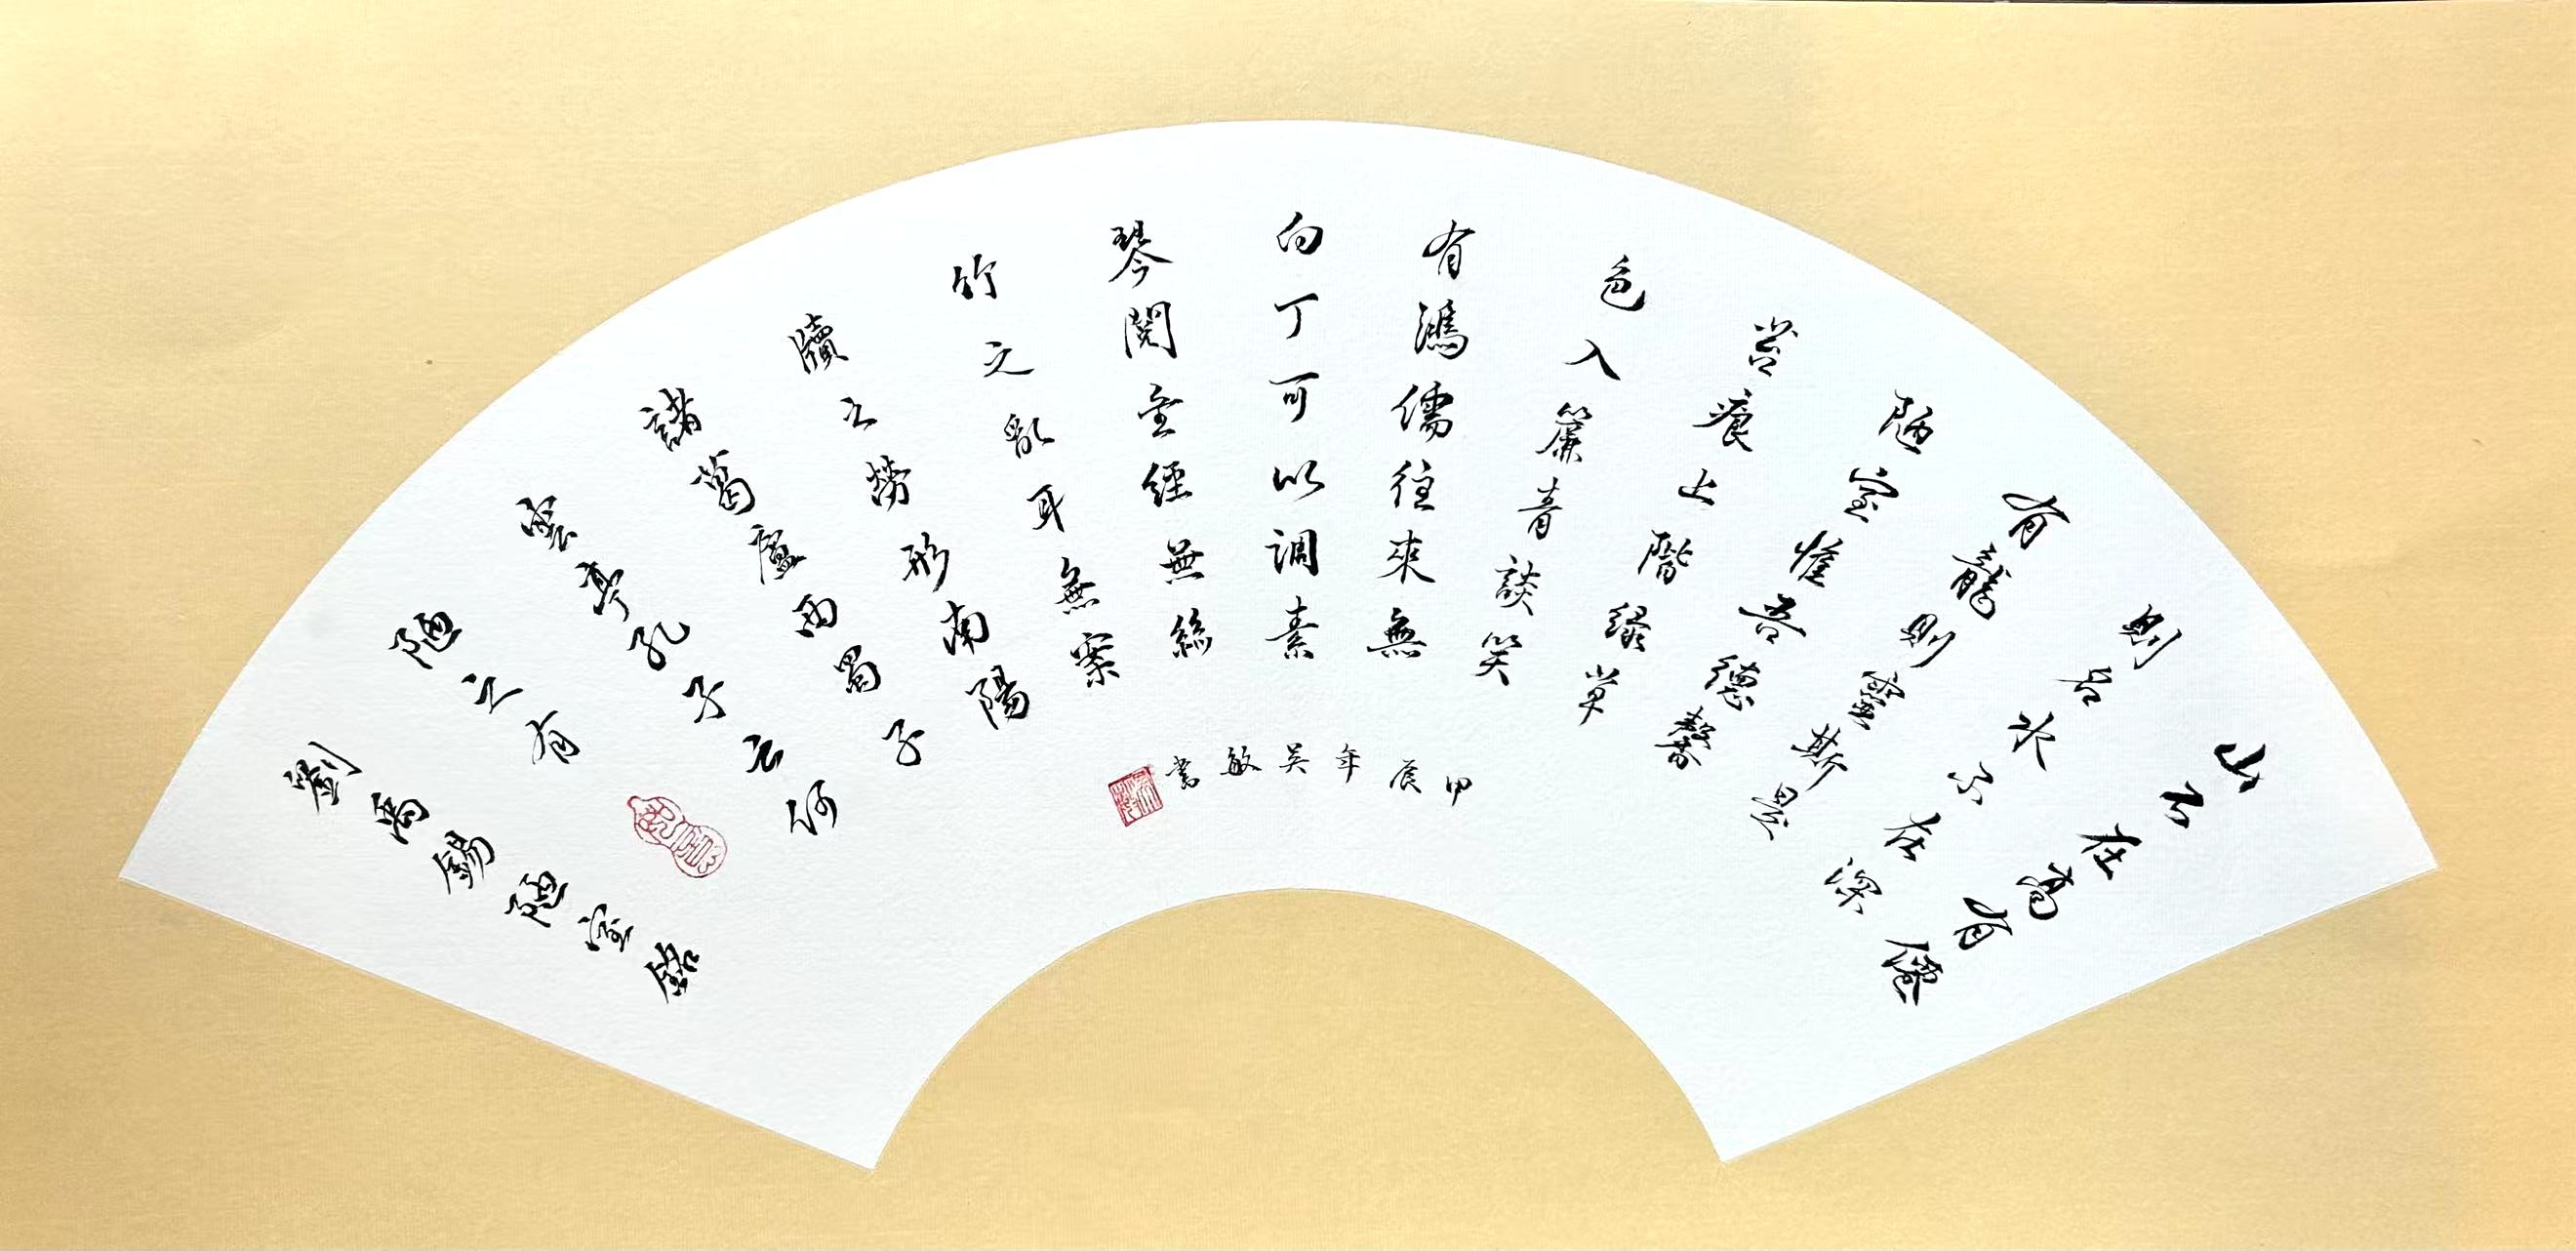 山不在高有僊
則名水不在深
有龍則靈斯是
陋室惟吾德馨
苔痕上階緑草
色入簾青談笑
有鴻儒往來無
白丁可以調素
琴閱金經無絲
竹之亂耳無案
牘之勞形南陽
諸葛廬西蜀子
雲亭孔子云何
陋之有
劉禹錫陋室銘
甲辰年吴敏書